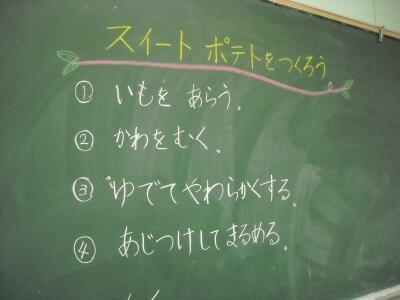 スイートポテトをつくろう
① いもを あらう。
② かわをむく。
③ ゆでてやわらかくする。
④ あじつけしてまるめる。